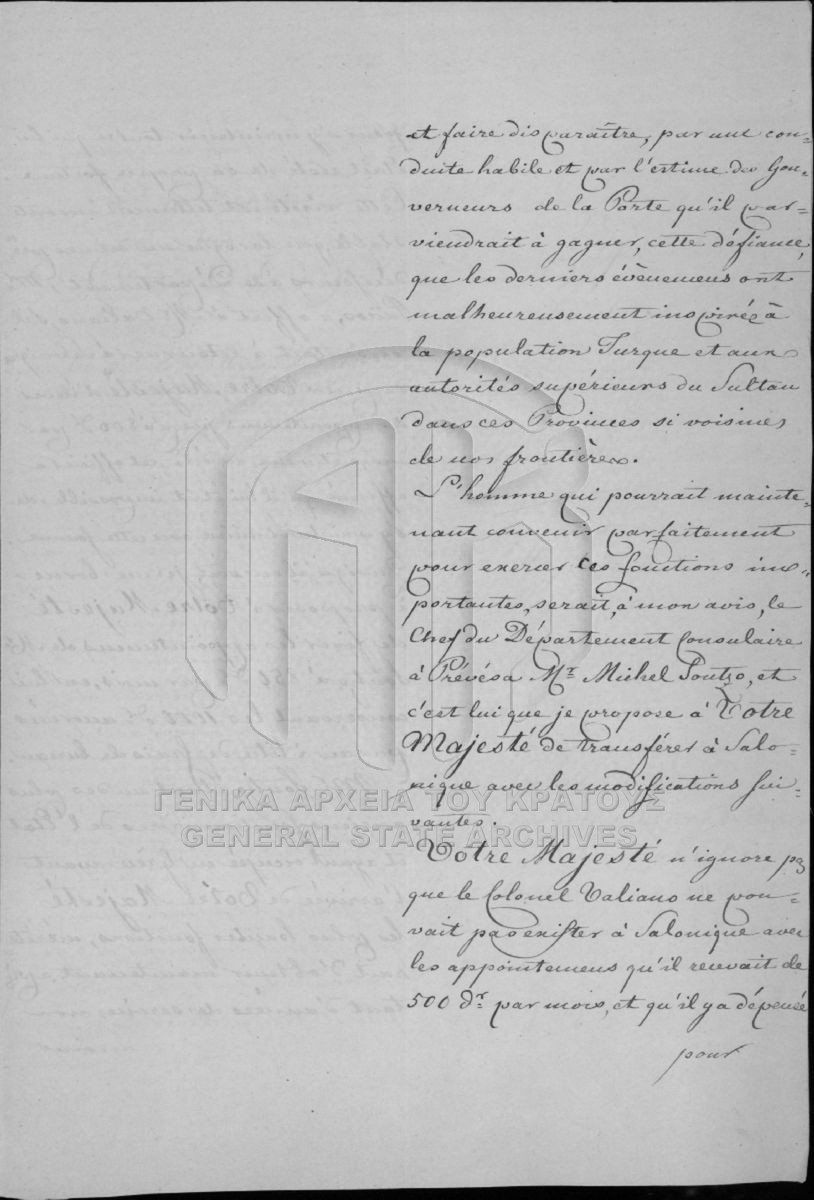 et faire disparaître, par une con-
duite habile et par l'estime des Gou-
verneurs de la Porte qu'il par-
viendrait à gagner, cette défiance,
que les derniers évènemens ont
malheureusement inspirée à
la population Turque et aux
autorités supérieurs du Sultan
dans ces Provinces si voisines
de nos frontières.
L'homme qui pourrait mainte-
nant convenir parfaitement
pour exercer ces fonctions im-
portantes, serait, à mon avis, le
Chef du Département Consulaire
à Prévésa Mr. Michel Soutzo, et
c'est lui que je propose à Votre
Majesté de transférer à Salo-
nique avec les modifications sui-
vantes.
ΓΕΝΙΚΑ ΑΡΧΕΙΑ ΤΟΥ ΚΡΑΤΟΥΣ
GENERAL STATE ARCHIVES
Votre Majesté n'ignore pas
que le Colonel Valiano ne pou-
vait pas exister à Salonique avec
les appointemens qu'il recevait de
500 dr. par mois, et qu'il y a dépensé
pour